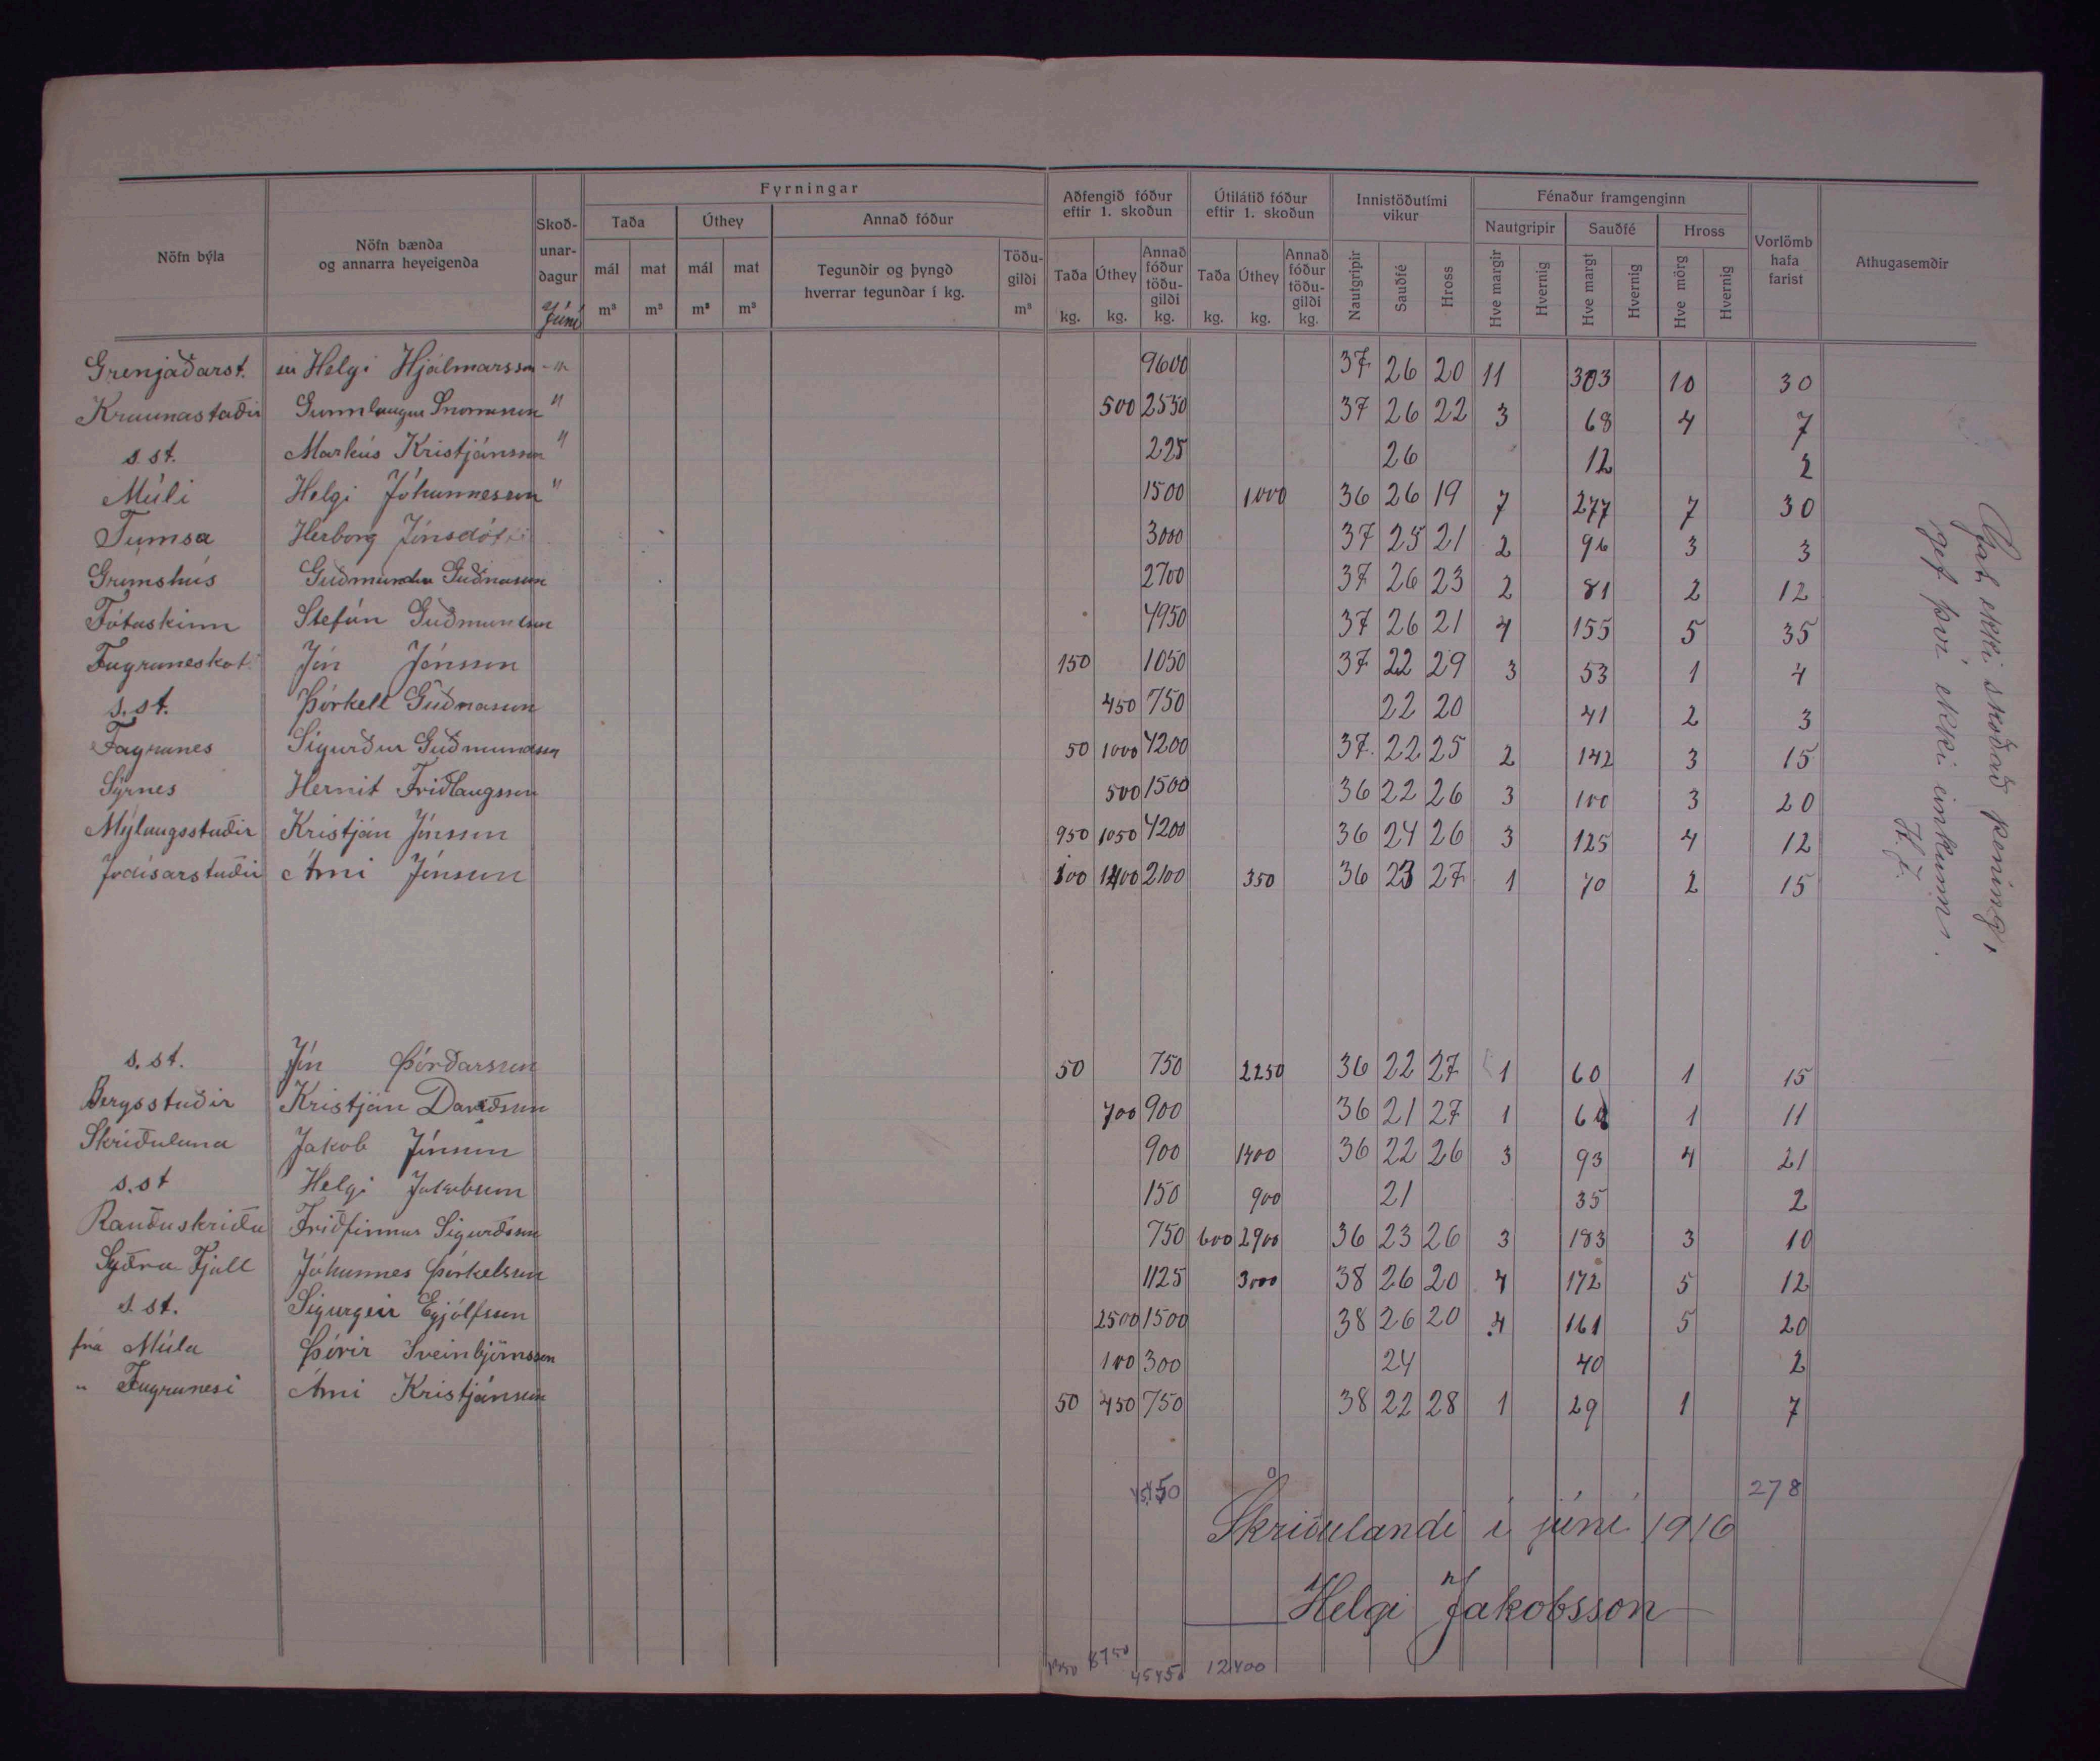 Fyrningar
Aðfengið fóður eftir 1. skoðun
Útilátið fóður eftir 1. skoðun
Innistöðutími vikur
Fénaður framgenginn
Nöfn býla
Nöfn bænda og annarra heyeigenda
Skoð-unar-dagur
Júní
Taða
Úthey
Annað fóður
mál m³ mat m³ mál m³ mat m³
Tegundir og þyngd hverrar tegundar í kg.
Töðu-gildi m³
Taða kg. Úthey kg. Annað fóður töðu-gildi kg.
Taða kg. Úthey kg. Annað fóður töðu-gildi kg.
Nautgripir Sauðfé Hross
Nautgripir Sauðfé Hross
Hve margir Hvernig Hve margt Hvernig Hve mörg Hvernig
Vorlömb hafa farist
Athugasemdir
Grenjaðarst. Helgi Hjálmarsson " 9600 37 26 20 11 303 10 30
Kraunastaðir Gunnlaugur Snorrason " 500 2550 37 26 22 3 68 4 7
s. st. Markús Kristjánsson " 225 26 12 2
Múli Helgi Jóhannesson " 1500 1000 36 26 19 7 277 7 30
Tumsa Herborg Jónsdóttir 3000 37 25 21 2 96 3 3
Grímshús Guðmundur Guðnason 2700 37 26 23 2 81 2 12
Fótaskinn Stefán Guðmundsson 4950 37 26 21 4 155 5 35
Fagraneskot Jón Jónsson 150 1050 37 22 29 3 53 1 4
s. st. Þórkell Guðnason 450 750 22 20 41 2 3
Fagranes Sigurður Guðmundsson 50 1000 4200 37 22 25 2 142 3 15
Sýrnes Hernit Friðlaugsson 500 1500 36 22 26 3 100 3 20
Mýlaugsstaðir Kristján Jónsson 950 1050 4200 36 24 26 3 125 4 12
Jódísarstaðir Árni Jónsson 100 1400 2100 350 36 23 27 1 70 2 15
s. st. Jón Þórðarson 50 750 2250 36 22 27 1 60 1 15
Bergsstaðir Kristján Davíðsson 700 900 36 21 27 1 1 11
Skriðuland Jakob Jónsson 900 1400 36 22 26 3 93 4 21
s. st Helgi Jakobsson 150 900 21 35 2
Rauðuskriða Friðfinnur Sigurðsson 750 600 2900 36 23 26 3 183 3 10
Syðra Fjall Jóhannes Þorkelsson 1125 3000 38 26 20 4 172 5 12
s. st. Sigurgeir Eyjólfsson 2500 1500 38 26 20 4 161 5 20
frá Múla Þórir Sveinbjörnsson 100 300 24 40 2
" Fagranesi Árni Kristjánsson 50 450 750 38 22 28 1 29 1 7
278
Skriðulandi í júní 1916
Helgi Jakobsson
8750
45450 12400
Gat ekki skoðað pening,
gef því ekki einkunn.
H.J.